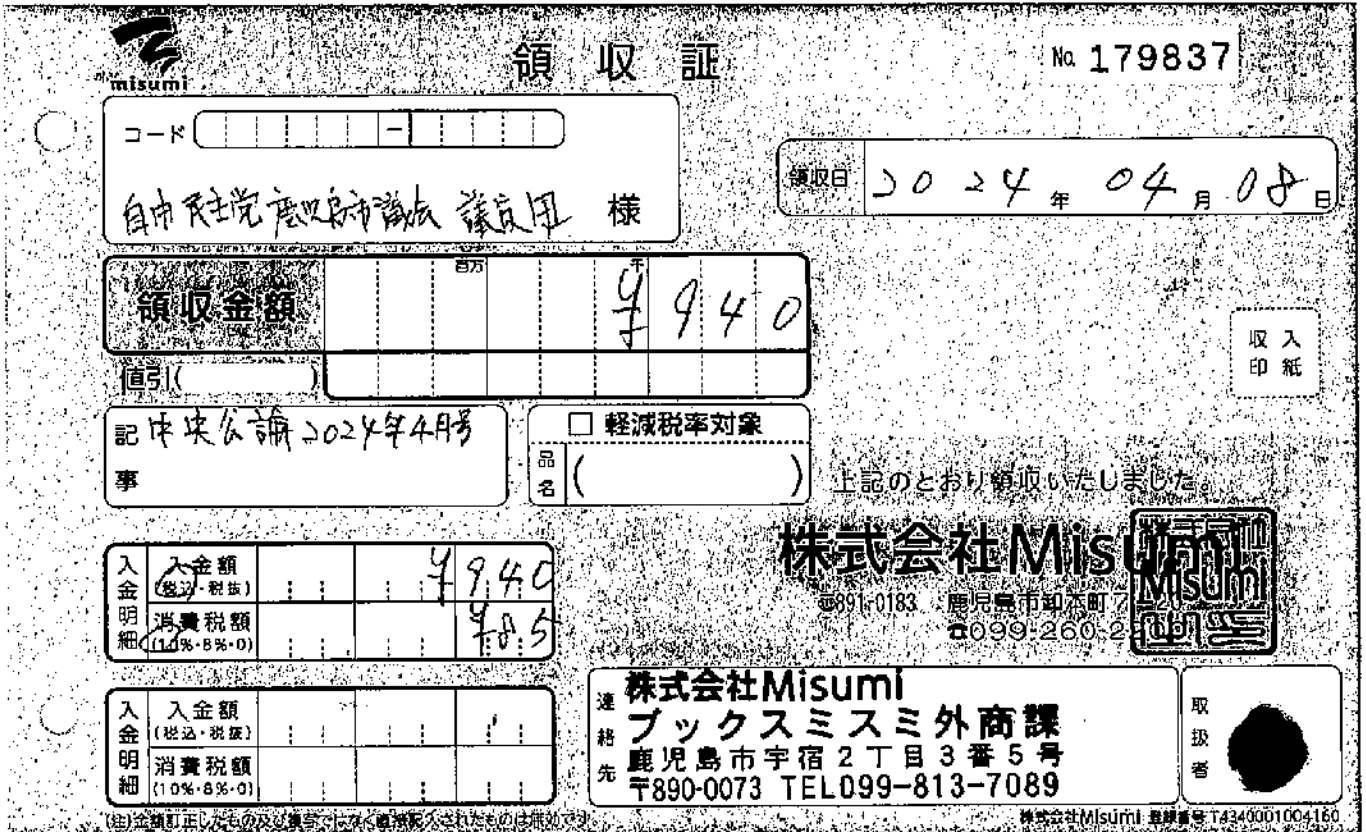 misumi
領収証
No. 179837
コード
自由民主党鹿児島市議会 議員団 様
領収日 2024年 04月 08日
領収金額 百万 千 ¥940
値引( )
記事 中央公論2024年4月号
□ 軽減税率対象
品名 ( )
収入印紙
上記のとおり領収いたしました。
株式会社Misumi
〒891-0183 鹿児島市卸本町
☎099-260-
入金明細 入金額 (税込・税抜) ¥940
消費税額 (10%・8%・0) ¥85
入金明細 入金額 (税込・税抜)
消費税額 (10%・8%・0)
連絡先 株式会社Misumi
ブックスミスミ外商課
鹿児島市宇宿2丁目3番5号
〒890-0073 TEL099-813-7089
取扱者
(注)金額訂正したもの及び複写ではなく直接記入されたものは無効です。
株式会社Misumi 登録番号 T4340001004160